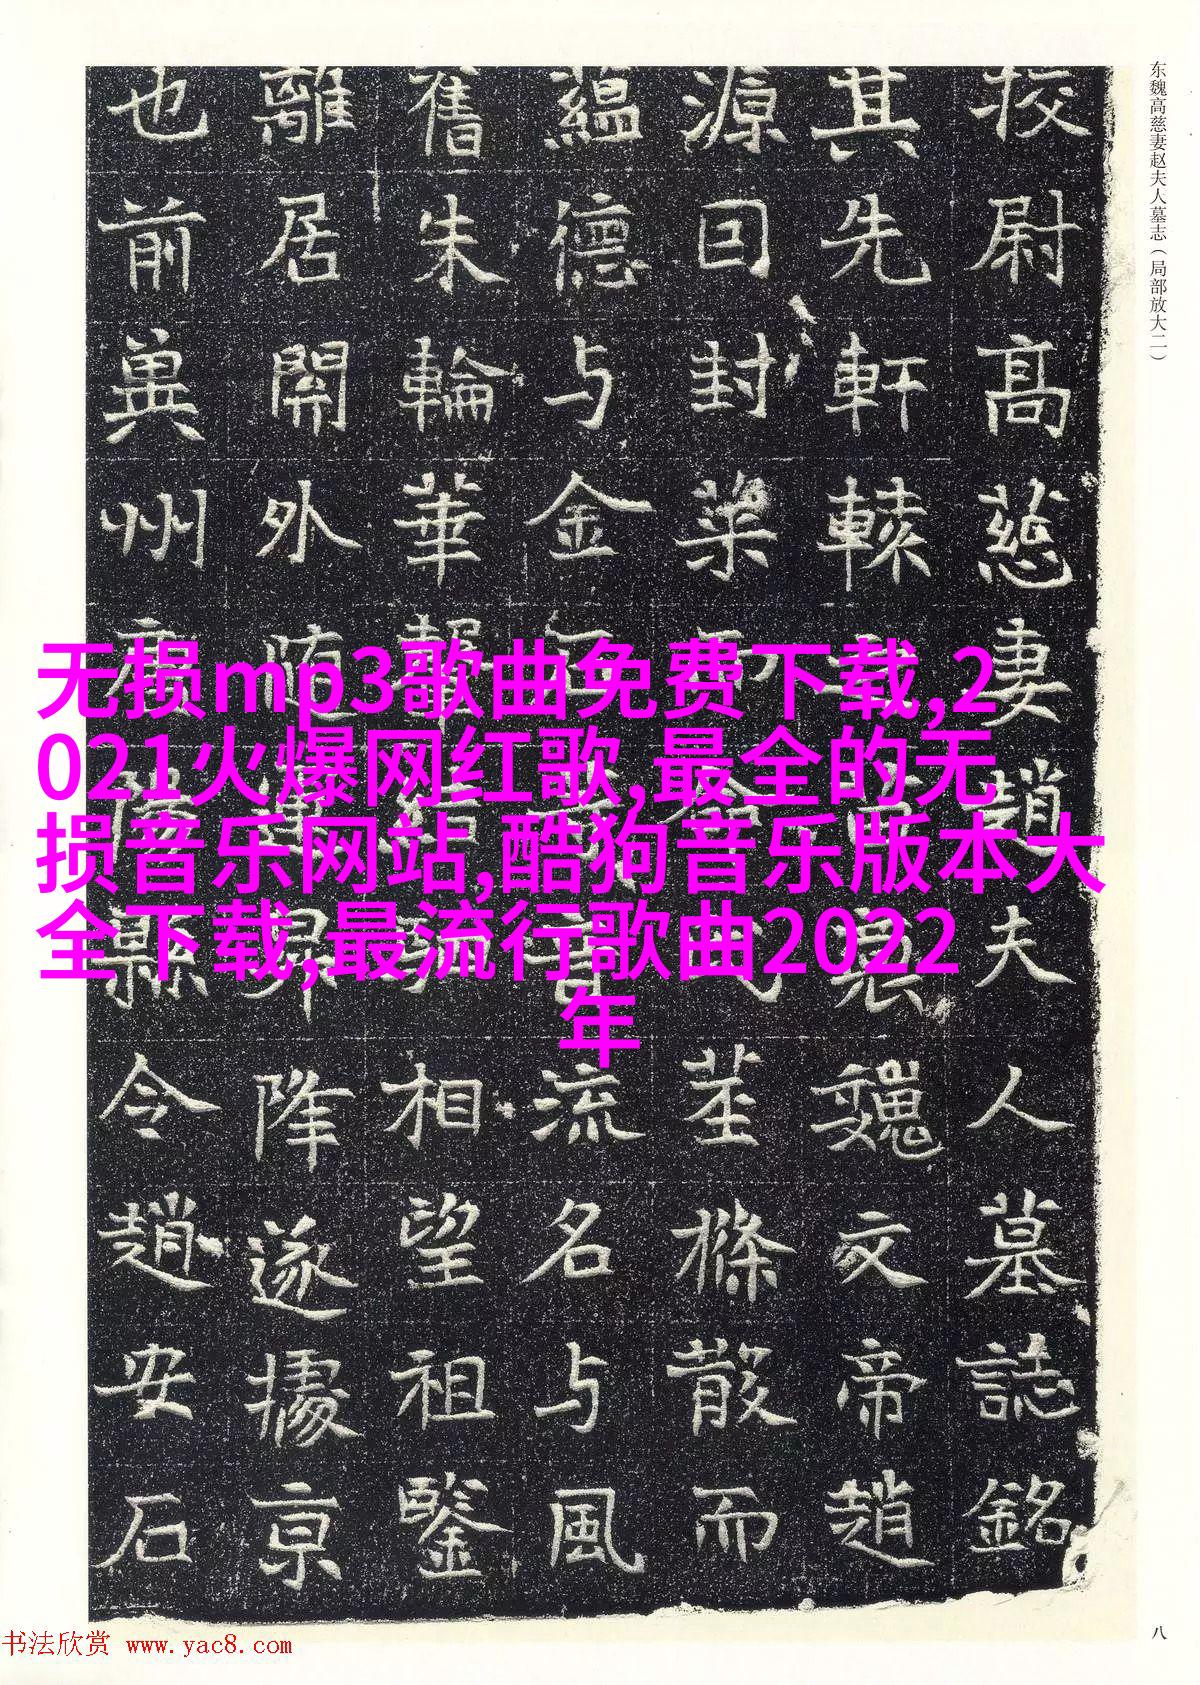 东魏高慈妻赵夫人墓志（局部放大二）
挍尉高慈妻趙夫人墓誌銘
其先軒轅魏文帝趙
源囙封莖條散而
蘊德与金流名与風
舊朱輪華相望祖鑒
離居開外降遂據京
也前冀州縣令趙安石
无损mp3歌曲免费下载,2
021火爆网红歌,最全的无
损音乐网站,酷狗音乐版本大
全下载,最流行歌曲2022
年
八
书法欣赏 www.yac8.com